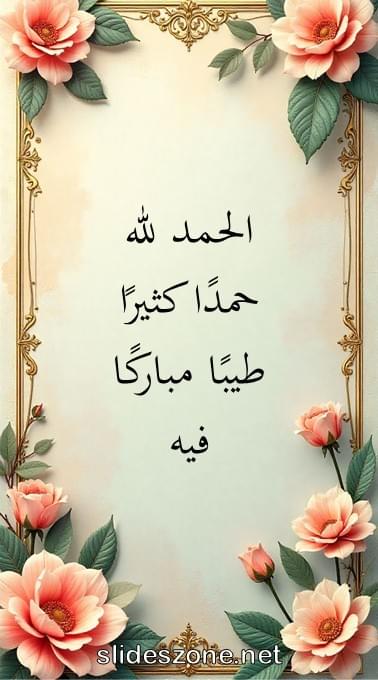 الحمد لله
حمدًا كثيرًا
طيبًا مباركًا
فيه
slideszone.net